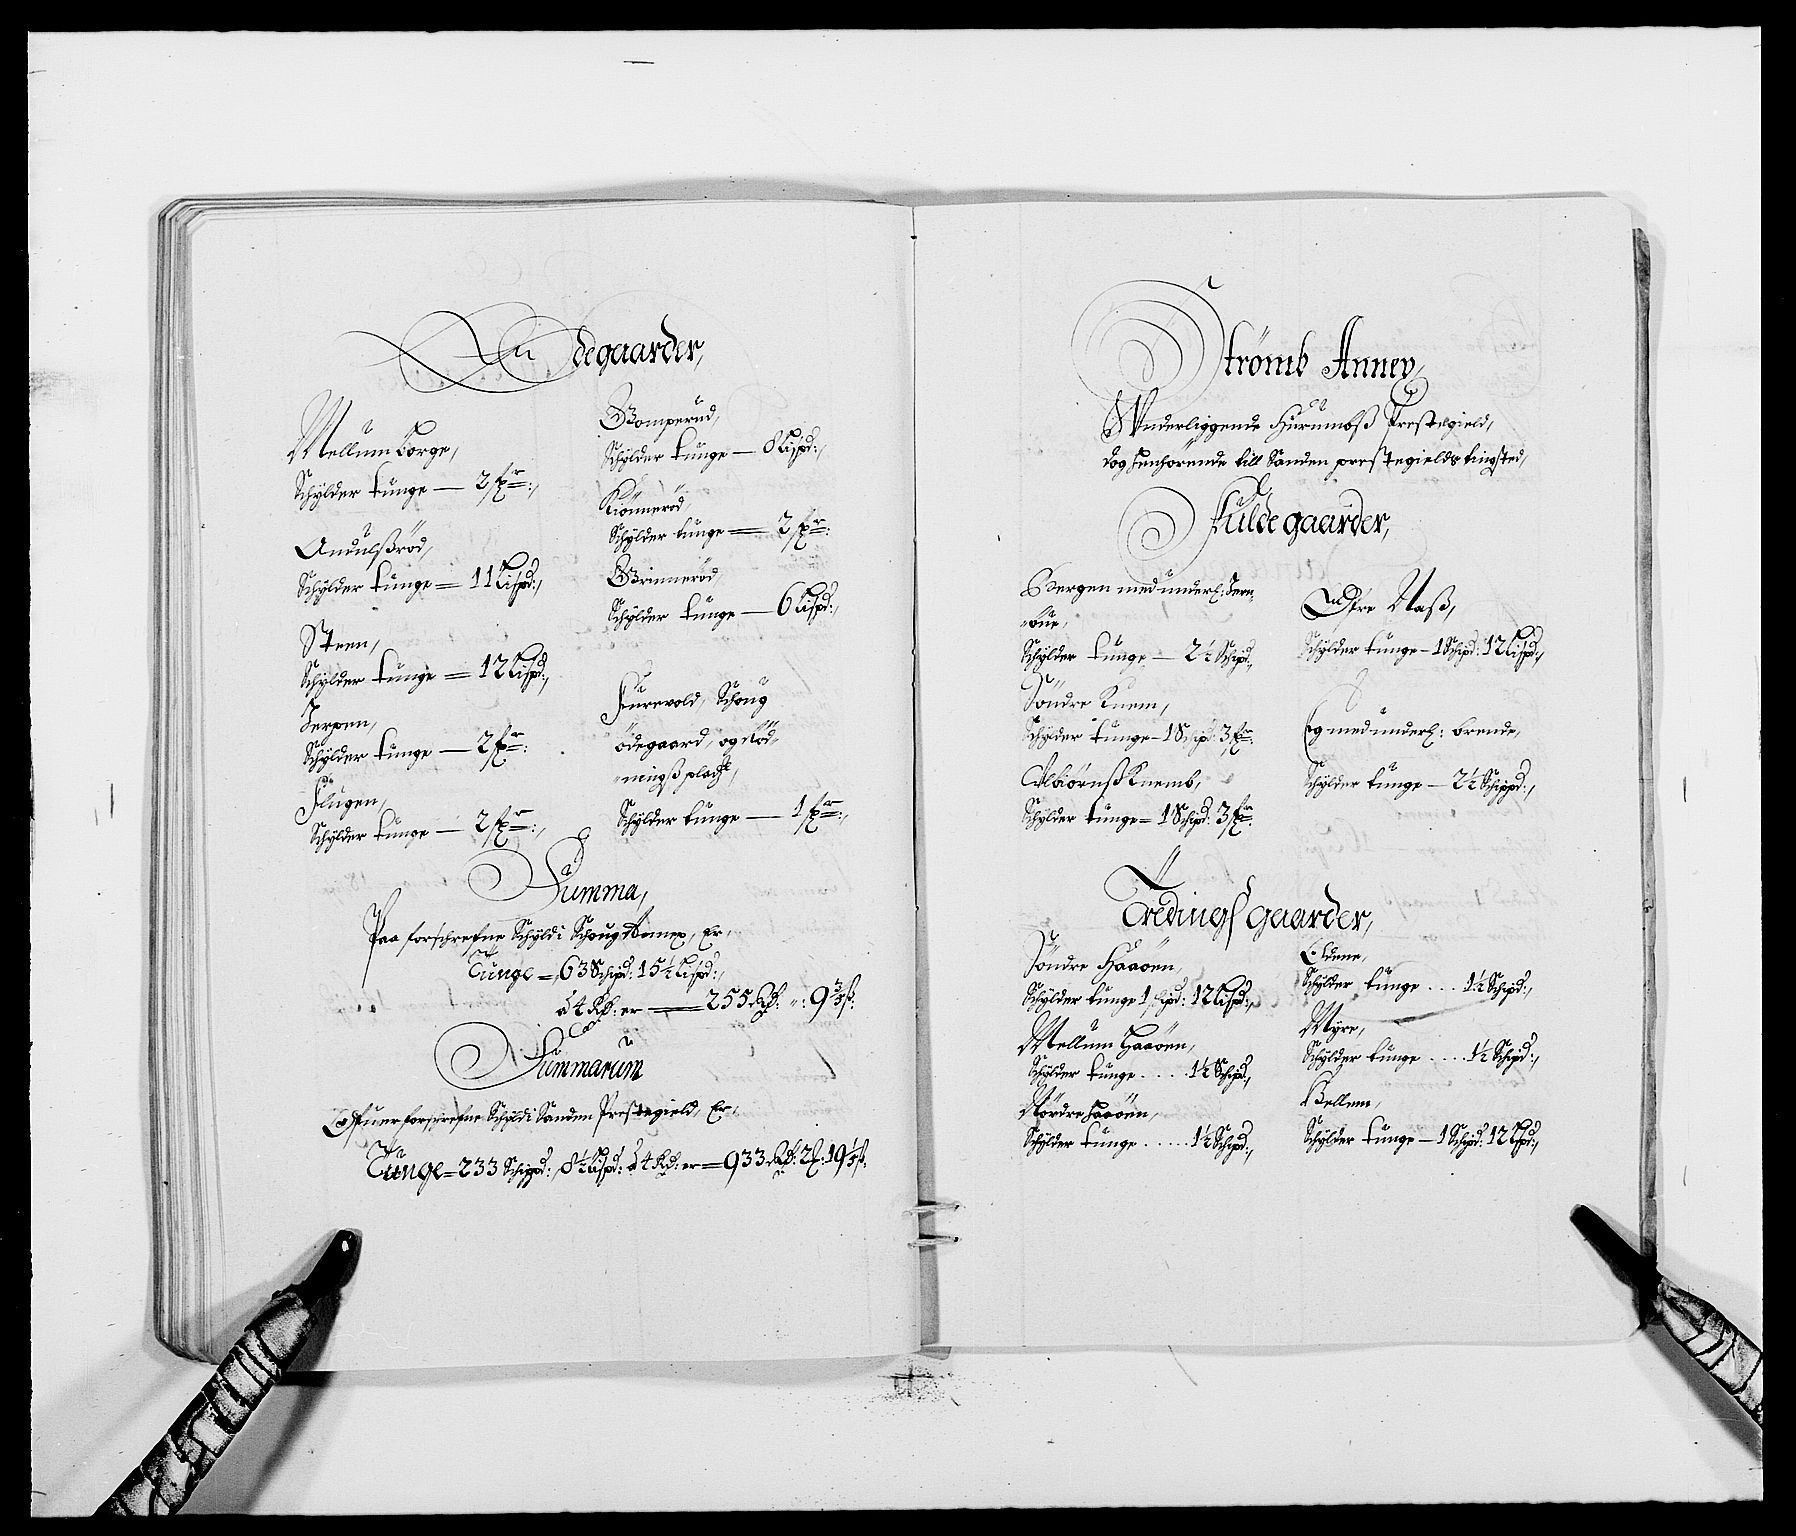 Ödegaarder,
Mellum borge,
Schylder tunge — 2 fr:,
Andulßröd,
Schylder tunge = 11 Lispd:,
Steen,
Schylder tunge = 12 Lispd:,
Jerpen,
Schylder tunge — 2 fr:
Flugen,
Schylder tunge — 2 fr:,
Gomperud,
Schylder tunge — 8 Lispd:,
Kiönneröd,
Schylder tunge = 2 fr:
Grinneröd,
Schylder tunge — 6 Lispd:,
Furevold, Schoug
ödegaard, og Röd,
ningß plads,
Schylder tunge — 1 fr:,
Summa,
Paa forschrefne Schyld i Er,
Tunge = 63 Schpd: 15½ Lispd:,
à 4 Rd: er — 255 Rd: „: 9 3/5 ß:
Summarum
Ofuer forschrefne Schyld i Sanden Prestegield, Er,
Tunge = 233 Schippd: 8½ Lispd: à 4 Rd: er = 933 Rd: 2 : 19 1/5 ß:
Strömb Anney,
Underliggende Hurumbß Prestegield,
dog henhörende till Sanden prestegields tingsted,
Fulde gaarder,
Bergen med underl: Jern„
„bue,
Schylder tunge — 2½ Schpd:,
Söndre Knem,
Schylder tunge — 1 Schpd: 3 fr:
Asbiörnß Knemb,
Schylder tunge = 1 Schpd: 3 fr:
Öfre Naß,
Schylder tunge — 1 Schpd: 12 Lispd:,
Eg med underl: brende,
Schylder tunge — 2½ Schippd:,
Ördingß gaarder,
Söndre Haaöen,
Schylder tunge 1 schpd: 12 Lispd:,
Mellum Haaöen,
Schylder tunge ..... 1½ Schpd:,
Nordre Haaöen,
Schylder tunge ...... 1½ Schpd:,
Oldene,
Schylder tunge .... 1½ Schpd:,
Myre,
Schylder tunge ..... 1½ Schpd:,
Bellem,
Schylder tunge — 1 Schpd: 12 Lpd:,